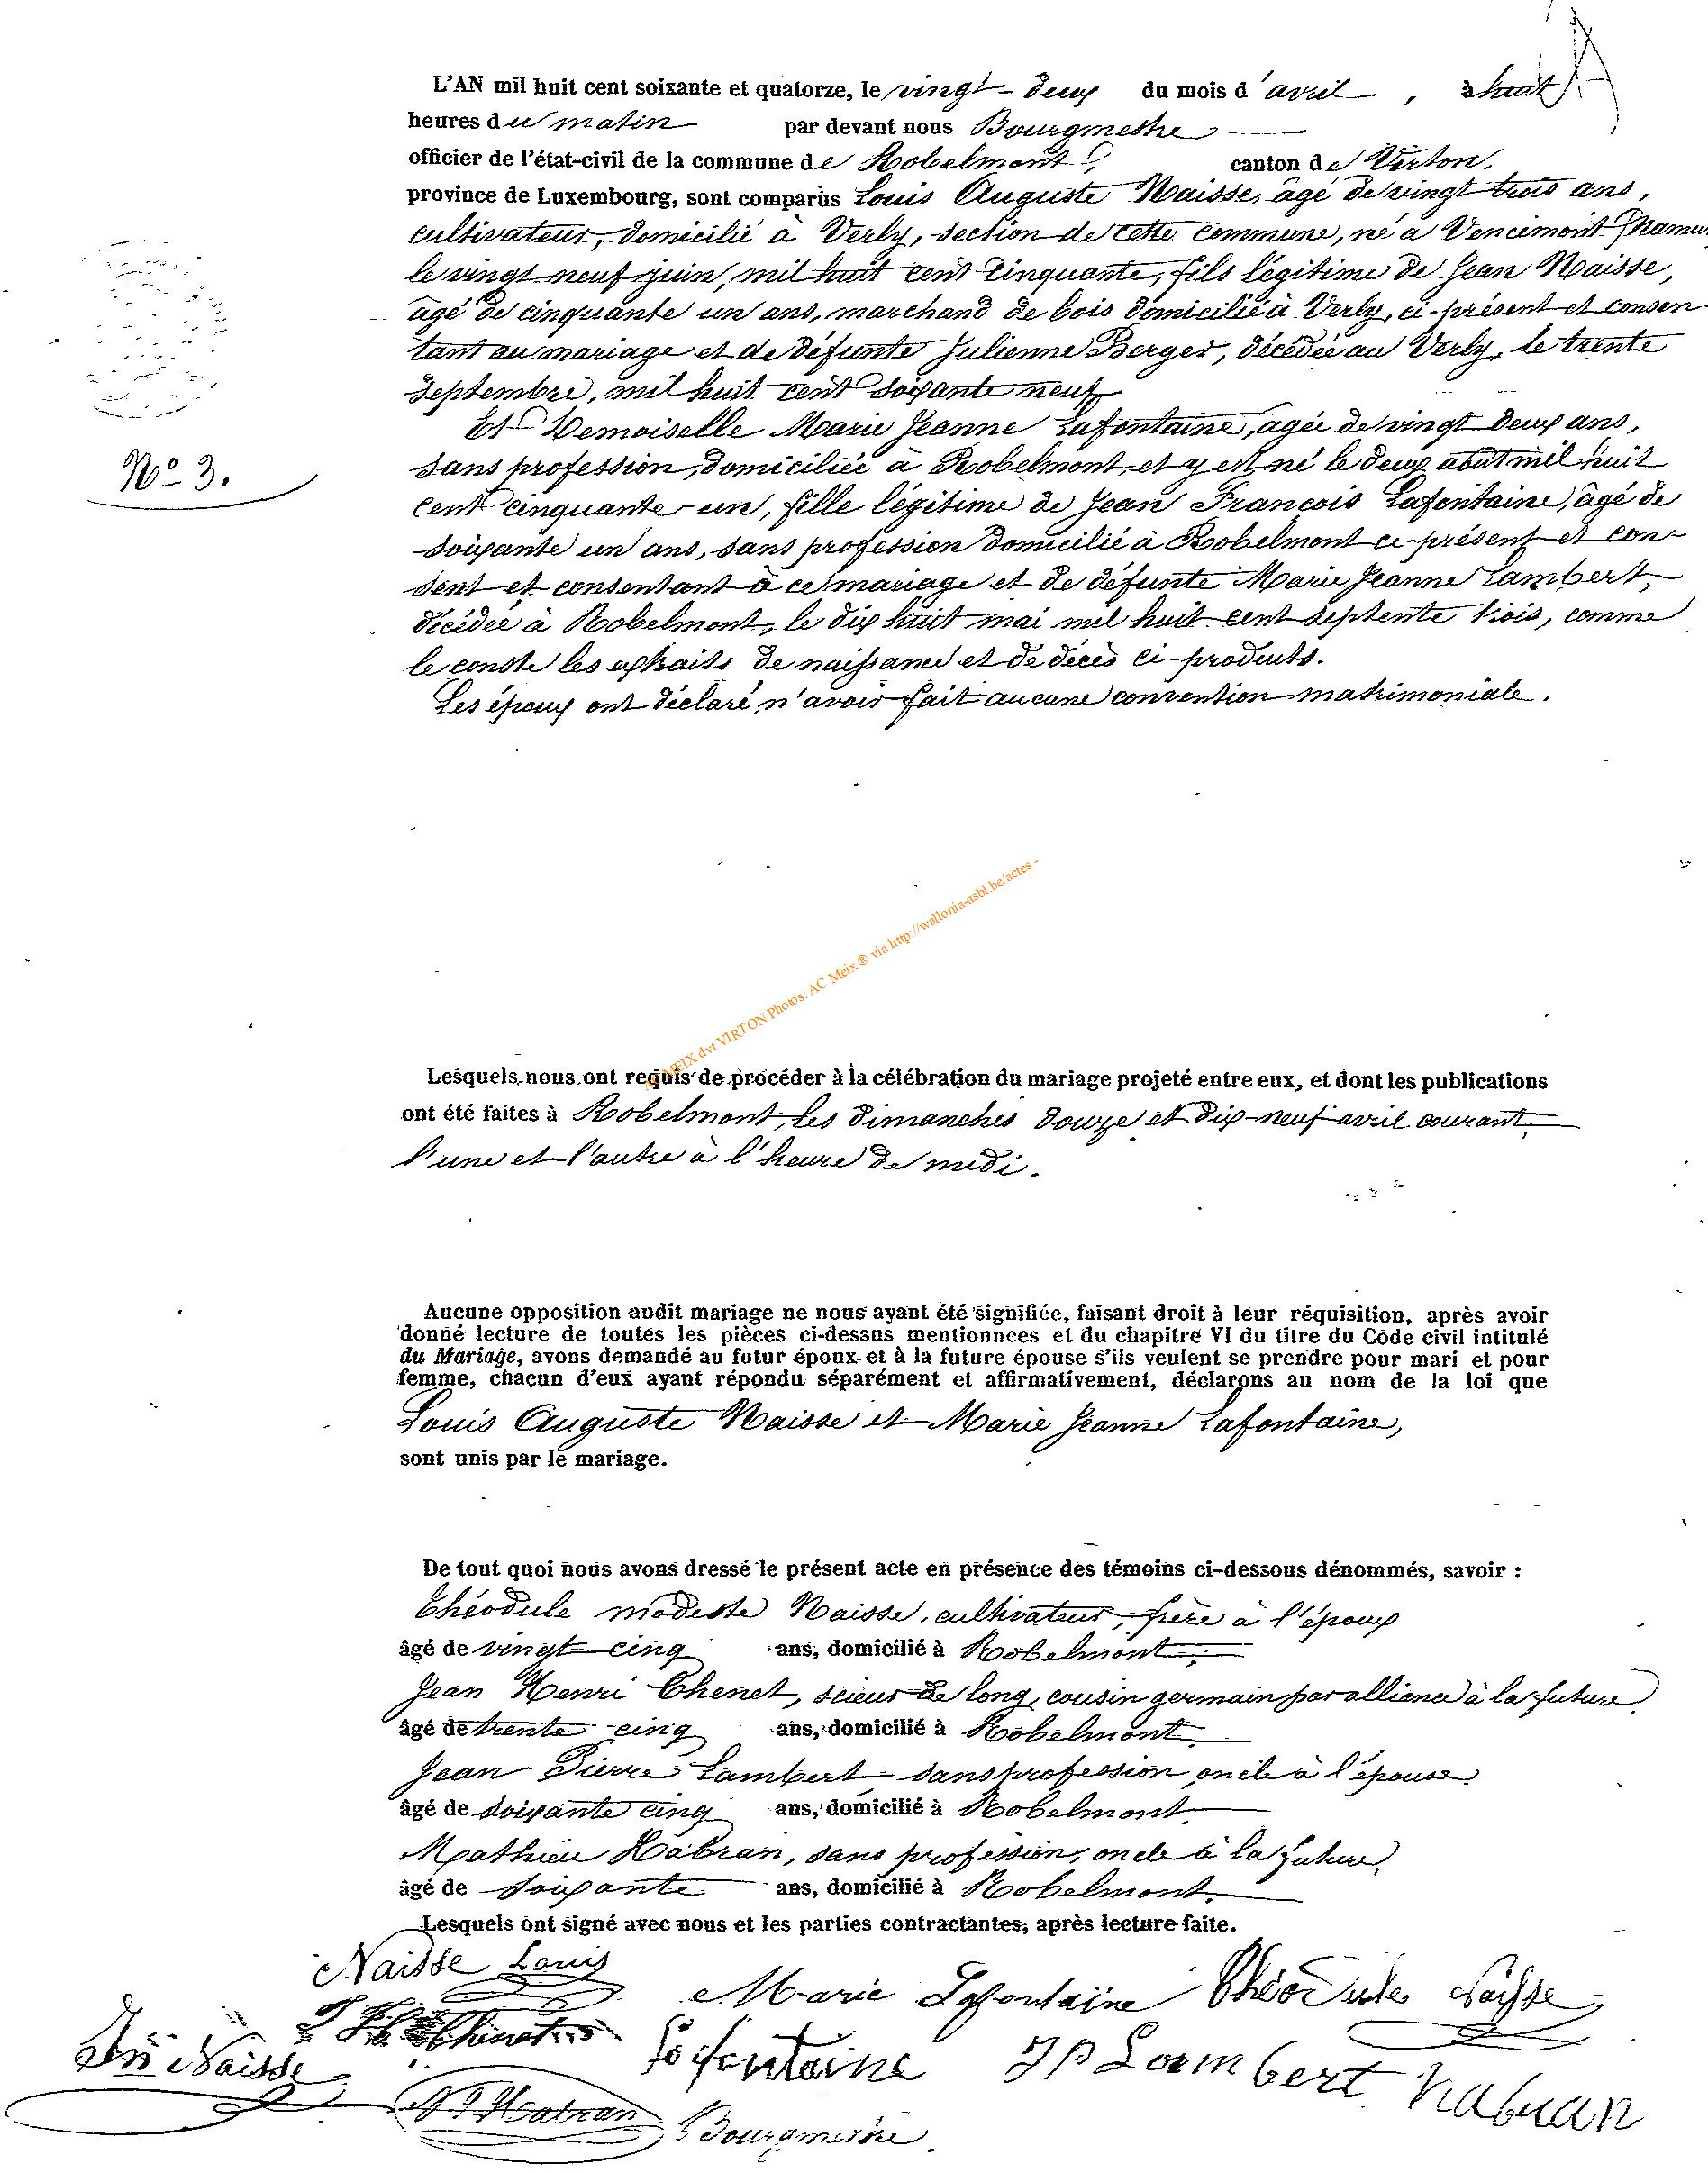 L'AN mil huit cent soixante et quatorze, le vingt-deux du mois d'avril, à huit
heures du matin par devant nous Bourgmestre
officier de l'état-civil de la commune de Robelmont, canton de Virton,
province de Luxembourg, sont comparus Louis Auguste Naisse, âgé de vingt trois ans,
cultivateur, domicilié à Verly, section de cette commune, né à Vencimont (Namur
le vingt neuf juin, mil huit cent cinquante, fils légitime de Jean Naisse,
âgé de cinquante un ans, marchand de bois domicilié à Verly, ci-présent et consen-
tant au mariage et de défunte Julienne Berger, décédée au Verly, le trente
septembre, mil huit cent soixante neuf
Et Demoiselle Marie Jeanne Lafontaine, agée de vingt deux ans,
N° 3.
sans profession, domiciliée à Robelmont, et y est né le deux août mil huit
cent cinquante-un, fille légitime de Jean François Lafontaine, âgé de
soixante un ans, sans profession domicilié à Robelmont ci-présent et con-
sent et consentant à ce mariage et de défunte Marie Jeanne Lambert,
décédée à Robelmont, le dix huit mai mil huit cent septente trois, comme
le conste les extraits de naissance et de décès ci-produits.
Les époux ont déclaré n'avoir fait aucune convention matrimoniale.
MEIX dvt VIRTON Photos: AC Meix ® via http://wallonia-asbl.be/actes -
Lesquels nous ont requis de procéder à la célébration du mariage projeté entre eux, et dont les publications
ont été faites à Robelmont, les dimanches douze et dix-neuf avril courant,
l'une et l'autre à l'heure de midi.
Aucune opposition audit mariage ne nous ayant été signifiée, faisant droit à leur réquisition, après avoir
donné lecture de toutes les pièces ci-dessus mentionnées et du chapitre VI du titre du Code civil intitulé
du Mariage, avons demandé au futur époux et à la future épouse s'ils veulent se prendre pour mari et pour
femme, chacun d'eux ayant répondu séparément et affirmativement, déclarons au nom de la loi que
Louis Auguste Naisse et Marie Jeanne Lafontaine,
sont unis par le mariage.
De tout quoi nous avons dressé le présent acte en présence des témoins ci-dessous dénommés, savoir :
Théodule modeste Naisse, cultivateur, frère à l'époux
âgé de vingt cinq ans, domicilié à Robelmont,
Jean Henri Thenet, scieur de long, cousin germain par alliance à la future,
âgé de trente cinq ans, domicilié à Robelmont,
Jean Pierre Lambert sans profession oncle à l'épouse,
âgé de soixante cinq ans, domicilié à Robelmont,
Mathieu Habran, sans profession, oncle à la future,
âgé de soixante ans, domicilié à Robelmont,
Lesquels ont signé avec nous et les parties contractantes, après lecture faite.
Naisse Louis
Marie Lafontaine Théodule Naisse
Naisse Lafontaine JP Lambert Habran
Habran Bourgmestre.